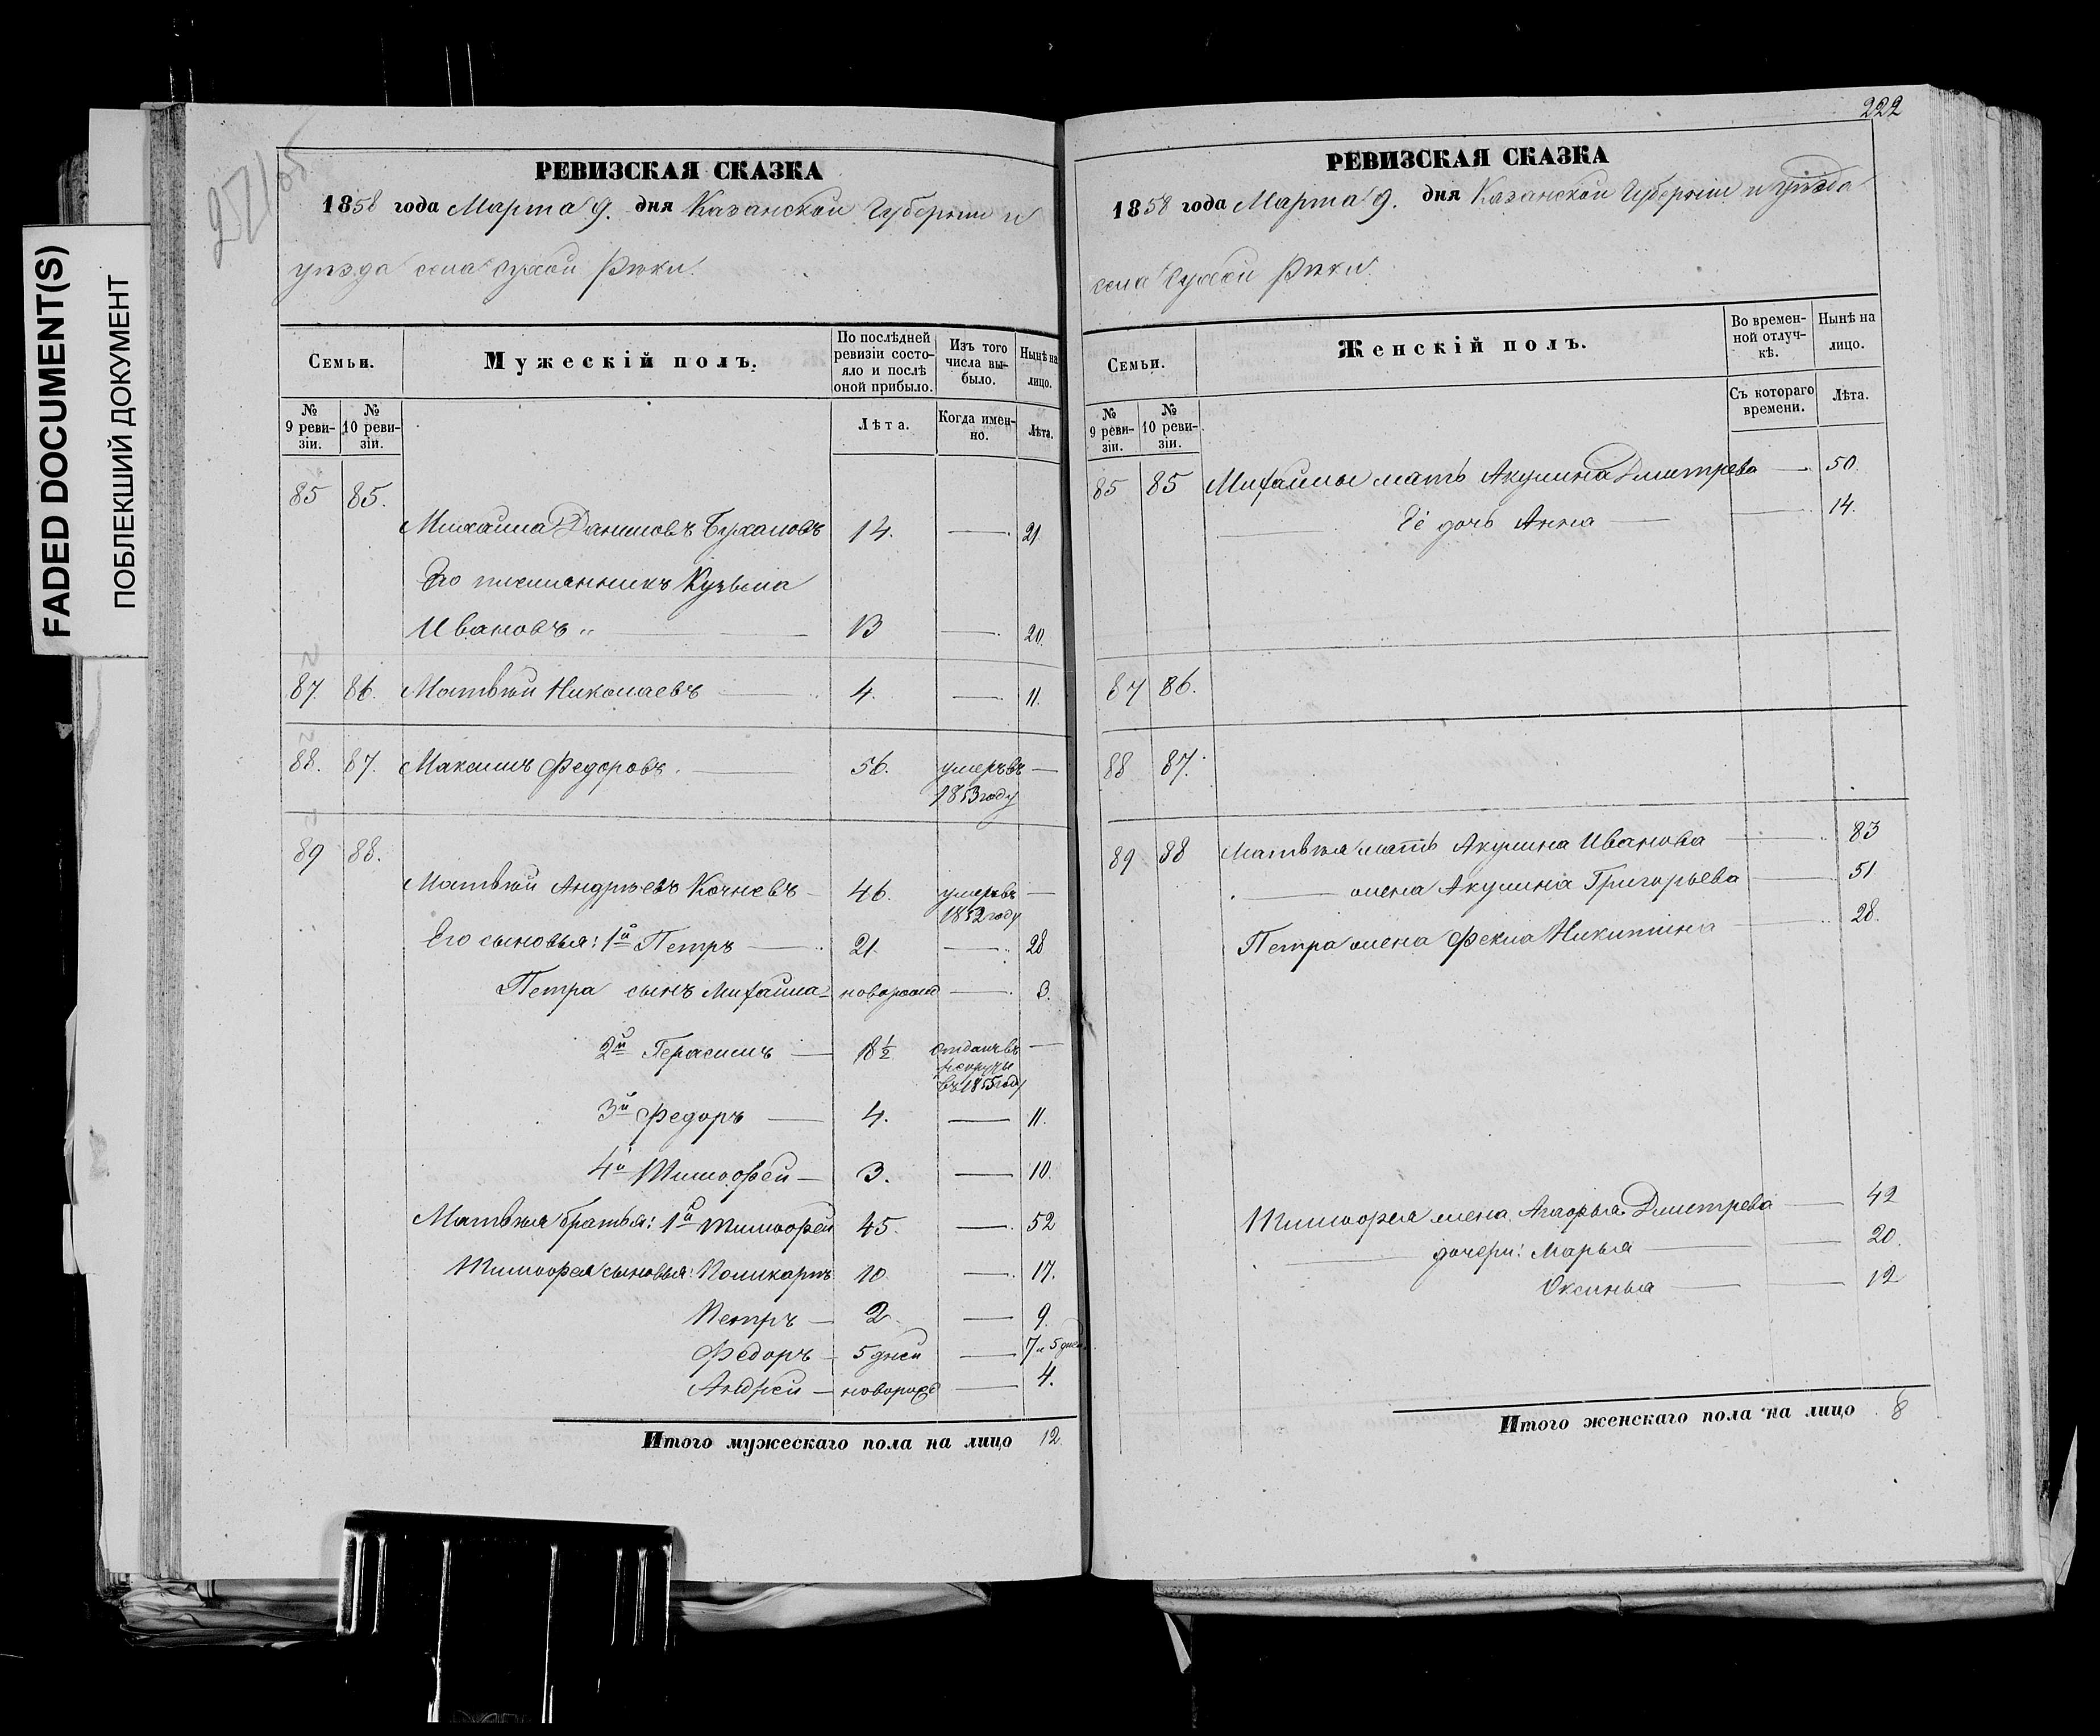 FADED DOCUMENT(S)
ПОБЛЕКШИЙ ДОКУМЕНТ
РЕВИЗСКАЯ СКАЗКА
1858 года Марта 9. дня Казанской Губерніи и
уѣзда села Сухой Рѣки.
Семьи.
Мужескій полъ.
По послѣдней ревизіи состо-
яло и послѣ
оной прибыло.
Изъ того
числа вы-
было.
Нынѣ на
лицо.
№ 9 реви-
зіи.
№ 10 реви-
зіи.
Лѣта.
Когда имен-
но.
Лѣта.
85 85.
Михаила Даниловъ Бухаловъ 14. — 21.
Его племянникъ Кузьма
Ивановъ „ — 13 — 20.
87. 86. Матвѣй Николаевъ — 4. — 11.
88. 87. Максимъ Федоровъ. — 56. умеръ въ —
1853 году
89 88.
Матвѣй Андреевъ Кочневъ — 46. умеръ въ —
1852 году
Его сыновья: 1й Петръ — 21. — 28
Петра сынъ Михайла — новорожд — 3.
2й Герасимъ — 18 1/2 отданъ въ —
рекруты
въ 1855 году
3й Федоръ — 4. — 11.
4й Тимофей — 3. — 10.
Матвѣя братья: 1й Тимофей 45. — 52
Тимофея сыновья: Поликарпъ 10 — 17.
Петръ — 2 — 9.
Федоръ — 5 дней — 7 и 5 дней
Андрей — новорожд — 4.
Итого мужескаго пола на лицо 12
222
РЕВИЗСКАЯ СКАЗКА
1858 года Марта 9. дня Казанской Губерніи и уѣзда
села Сухой Рѣки.
Семьи.
Женскій полъ.
Во времен-
ной отлуч-
кѣ.
Нынѣ на
лицо.
№ 9 реви-
зіи.
№ 10 реви-
зіи.
Съ котораго
времени.
Лѣта.
85 85 Михайлы мать Акулина Дмитрева — 50.
— Её дочь Анна — 14.
87 86.
88 87.
89 88 Матвѣя мать Акулина Иванова — 83
— жена Акулина Григорьева — 51
Петра жена Фекла Никитина — 28.
Тимофея жена Дмитрева — 42
— дочери: Марья — 20.
Оксинья — 12
Итого женскаго пола на лицо 8